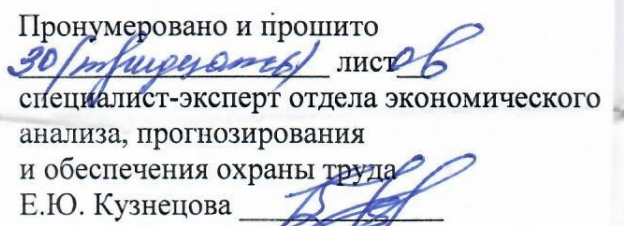 Пронумеровано и прошито
30 (тридцать) листов
специалист-эксперт отдела экономического
анализа, прогнозирования
и обеспечения охраны труда
Е.Ю. Кузнецова